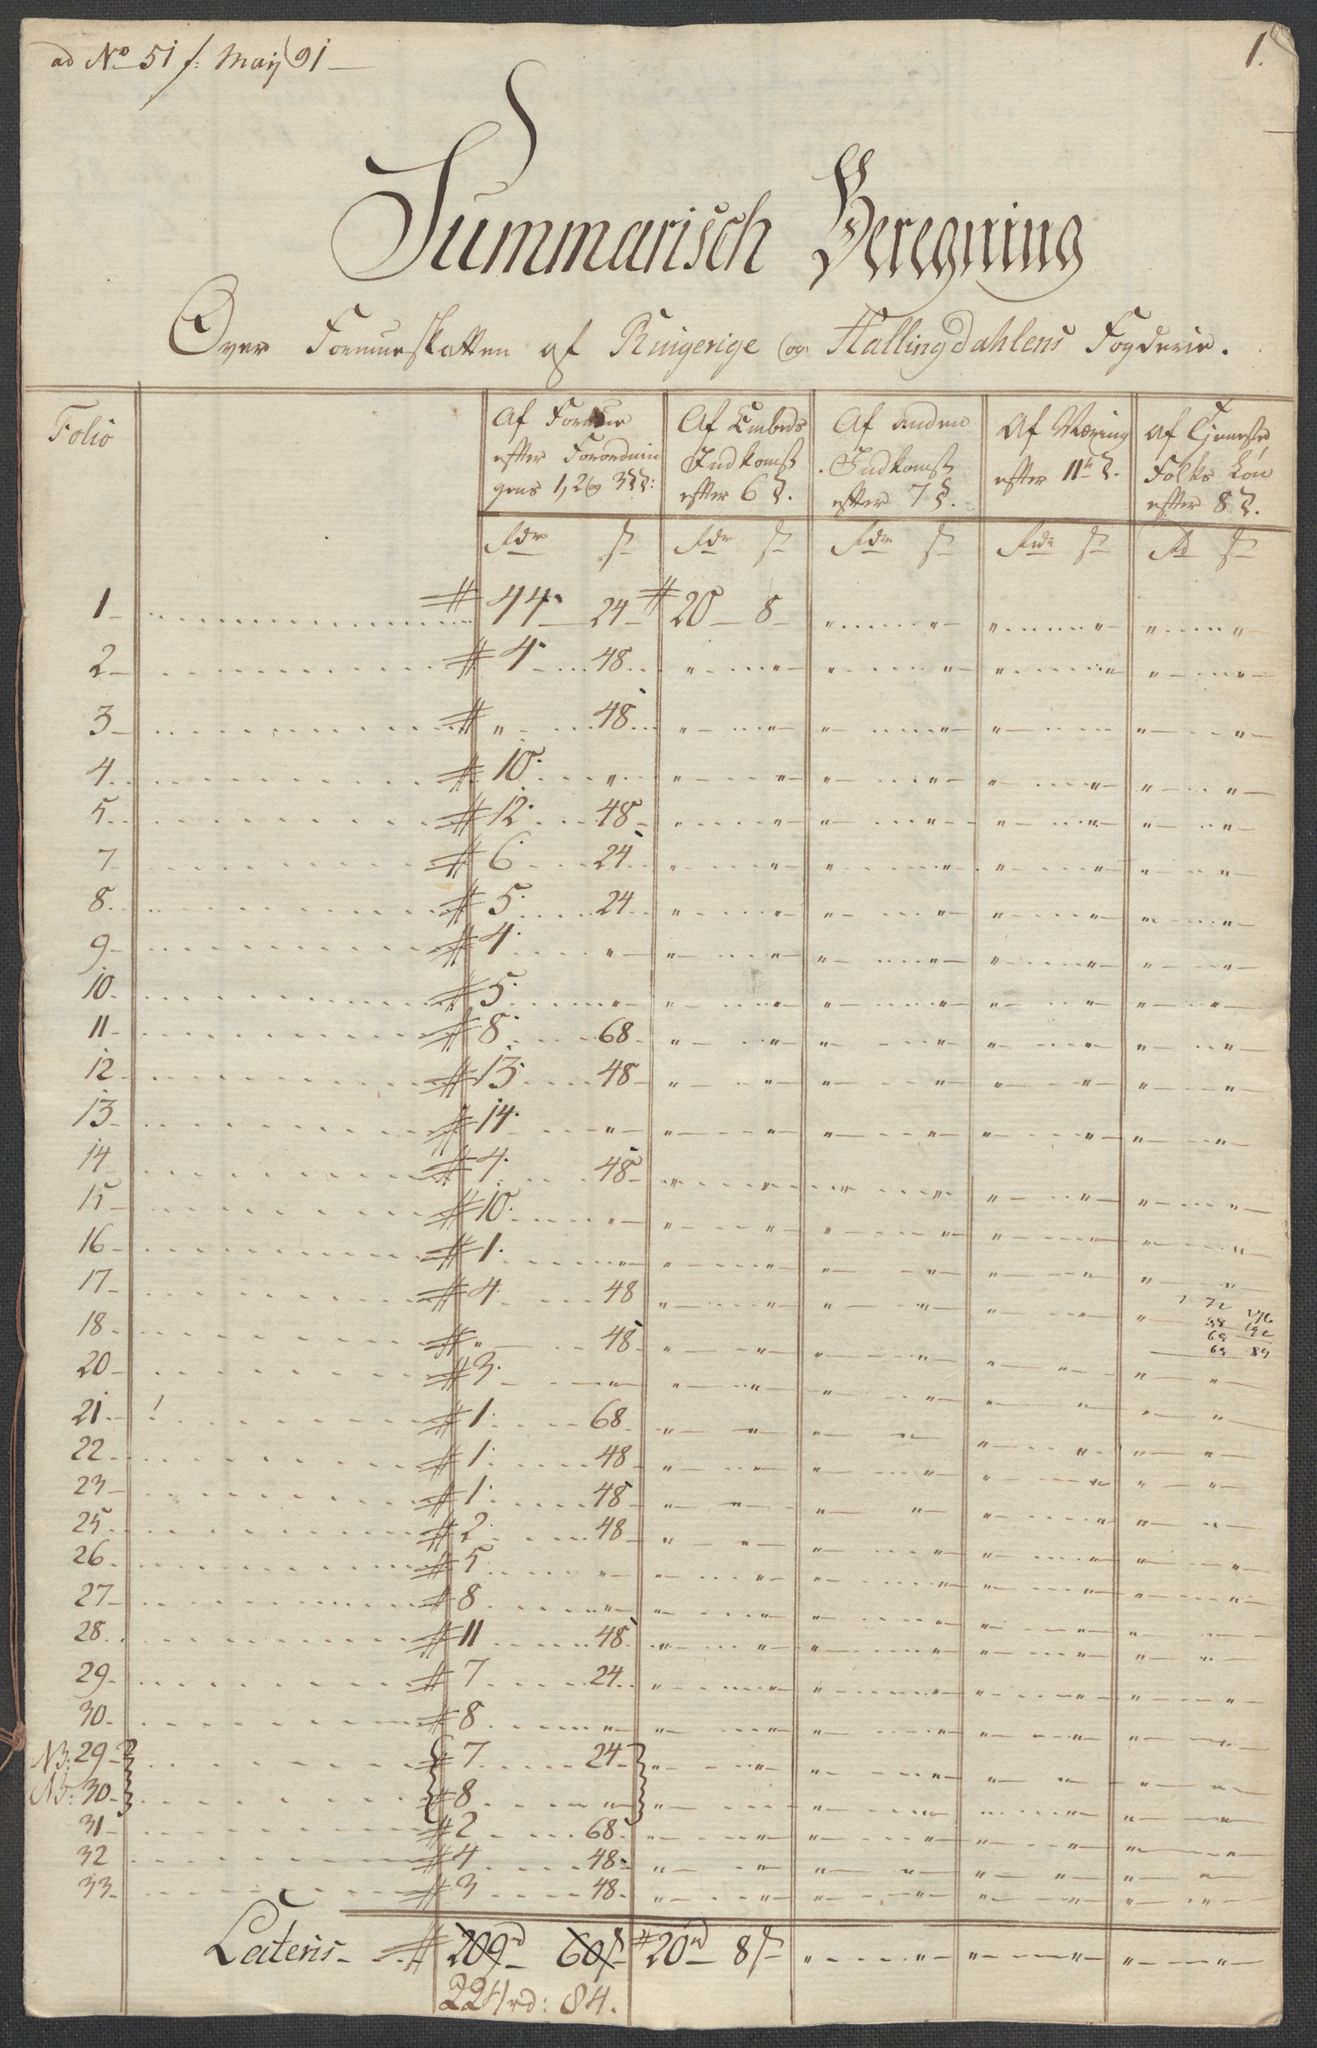 ad No 51 f: Maij 91
1.
Summarisch Beregning
Over Formueskatten af Ringerige og Hallingdahlens Fogderie.
Folio | Af Formue efter Forordnin gens 1, 2 og 3 §§: | Af Embeds Indkomst efter 6 §. | Af anden Indkomst efter 7 §. | Af Næring efter 11te §. | Af Tjeneste Folks Løn efter 8 §.
Rdr ß | Rdr ß | Rdr ß | Rdr ß | Rd ß
1 # 44 24 # 20 8 " " " " " "
2 # 4 48 " " " " " " " "
3 # " 48 " " " " " " " "
4 # 10 " " " " " " " " "
5 # 12 48 " " " " " " " "
7 # 6 24 " " " " " " " "
8 # 5 24 " " " " " " " "
9 # 4 " " " " " " " " "
10 # 5 " " " " " " " " "
11 # 8 68 " " " " " " " "
12 # 13 48 " " " " " " " "
13 # 14 " " " " " " " " "
14 # 4 48 " " " " " " " "
15 # 10 " " " " " " " " "
16 # 1 " " " " " " " " "
17 # 4 48 " " " " " " " "
18 # " 48 " " " " " " " "
20 # 3 " " " " " " " " "
21 # 1 68 " " " " " " " "
22 # 1 48 " " " " " " " "
23 # 1 48 " " " " " " " "
25 # 2 48 " " " " " " " "
26 # 5 " " " " " " " " "
27 # 8 " " " " " " " " "
28 # 11 48 " " " " " " " "
29 # 7 24 " " " " " " " "
30 # 8 " " " " " " " " "
NB: 29 # 7 24 " " " " " " " "
NB: 30 # 8 " " " " " " " " "
31 # 2 68 " " " " " " " "
32 # 4 48 " " " " " " " "
33 # 3 48 " " " " " " " "
Lateris # 209rd 60ß # 20rd 8ß " " " " " "
224rd: 84.